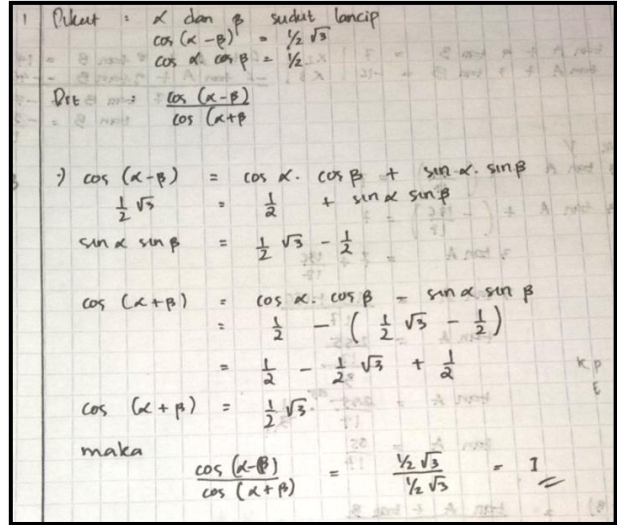 1 Diket : α dan β sudut lancip
cos (α - β) = 1/2 √3
cos α cos β = 1/2
Dit : cos (α-β) / cos (α+β
⇒ cos (α-β) = cos α. cos β + sin α. sin β
1/2 √3 = 1/2 + sin α sin β
sin α sin β = 1/2 √3 - 1/2
cos (α+β) = cos α. cos β - sin α sin β
= 1/2 - ( 1/2 √3 - 1/2 )
= 1/2 - 1/2 √3 + 1/2
cos (α + β) = 1/2 √3.
maka
cos (α-β) / cos (α+β) = 1/2 √3 / 1/2 √3 = 1